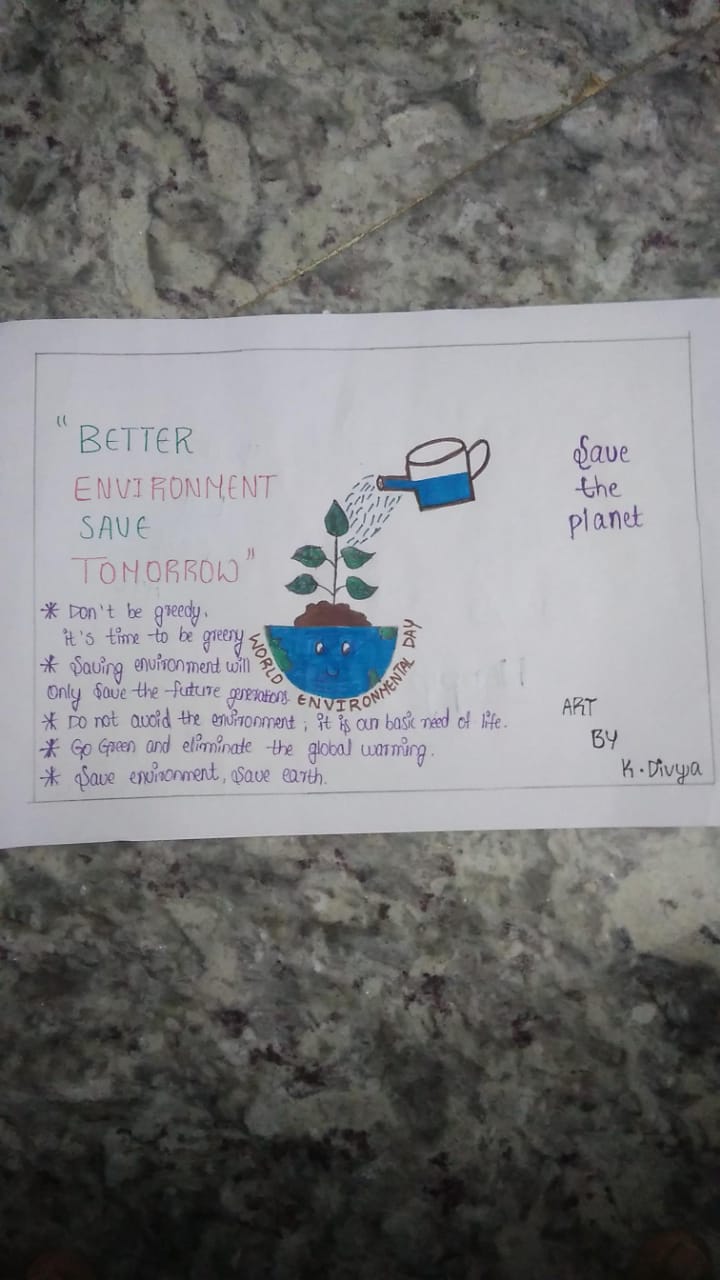 "BETTER
ENVIRONMENT
SAVE
TOMORROW"
* Don't be greedy,
it's time to be greeny
* Saving environment will
Only Save the future generations.
* Do not avoid the environment; it is our basic need of life.
* Go Green and eliminate the global warming.
* Save environment, Save earth.
WORLD ENVIRONMENTAL DAY
Save
the
planet
ART
BY
K. Divya